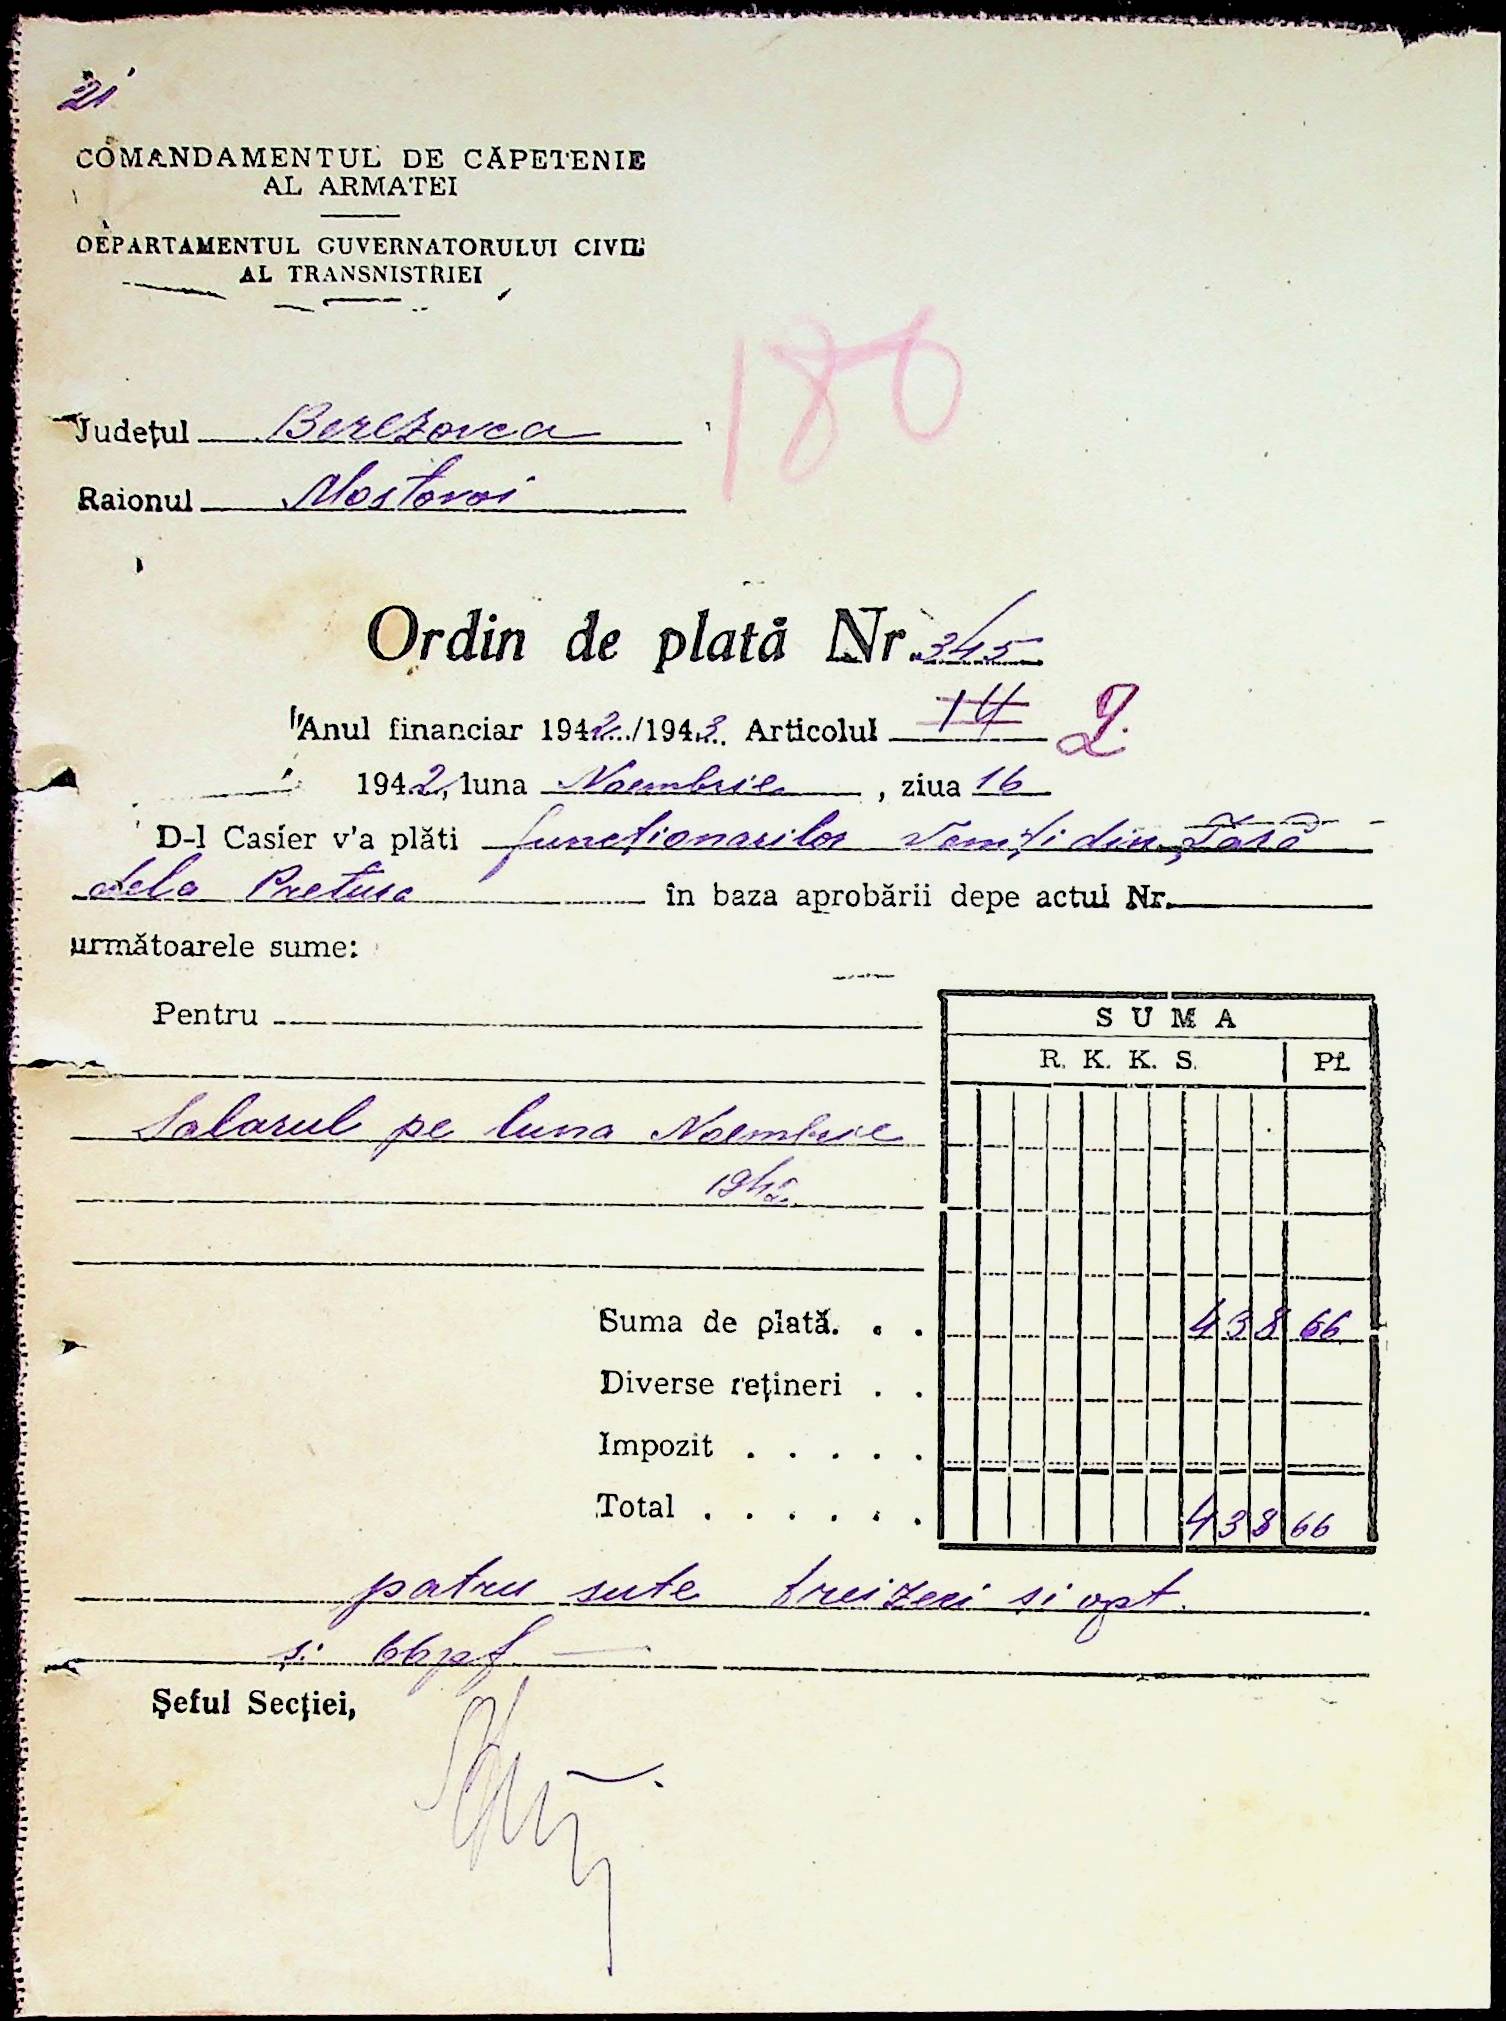 21
COMANDAMENTUL DE CĂPETENIE
AL ARMATEI
DEPARTAMENTUL GUVERNATORULUI CIVIL
AL TRANSNISTRIEI
180
Județul Berezovca
Raionul Mostovoi
Ordin de plată Nr. 345
Anul financiar 1942/1943 Articolul 14 2.
1942, luna Noembrie, ziua 16
D-l Casier v'a plăti funcționarilor veniți din Țară
dela Pretura în baza aprobării depe actul Nr.
următoarele sume:
Pentru
SUMA
R. K. K. S. Pf.
Salarul pe luna Noembrie
1942
Suma de plată. . . 438 66
Diverse rețineri . .
Impozit . . . . .
Total . . . . . . 438 66
patru sute treizeci și opt
și 66 pf
Șeful Secției,